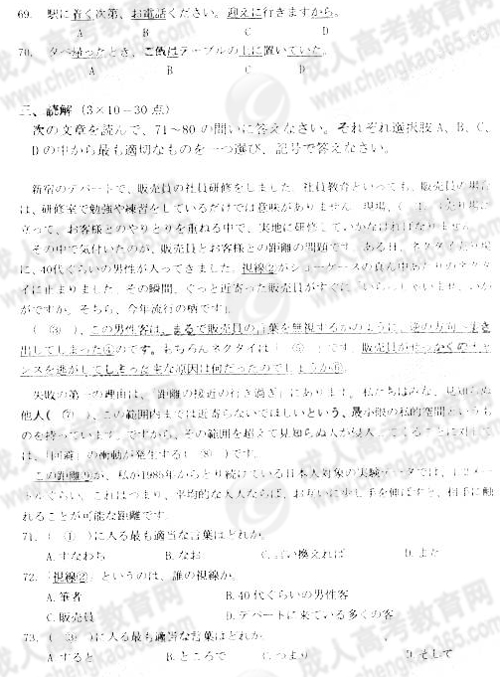 69. 駅に着く次第、お電話ください。迎えに行きますから。
A B C D
70. 夕べ帰ったとき、ご飯はテーブルの上に置いていた。
A B C D
三、読解（3×10＝30点）
次の文章を読んで、71～80の問いに答えなさい。それぞれ選択肢A、B、C、
Dの中から最も適切なものを一つ選び、記号で答えなさい。
新宿のデパートで、販売員の社員研修をしました。社員教育といっても、販売員の場合
は、研修室で勉強や練習をしているだけでは意味がありません。現場、（①）売り場に
立って、お客様とのやりとりを重ねる中で、実地に研修していかなければなりません。
その中で気付いたのが、販売員とお客様との距離の問題です。ある日、ネクタイ売り場
に、40代くらいの男性が入ってきました。視線②がショーケースの真ん中あたりのネクタ
イに止まりました。その瞬間、ぐっと近寄った販売員がすぐに「いらっしゃいませ。いか
がですか。そちら、今年流行の柄です」。
（③）、この男性客は、まるで販売員の言葉を無視するかのように、逆の方向へ歩き
出してしまった④のです。もちろんネクタイは（⑤）です。販売員がせっかくのチャ
ンスを逃がしてしまった主な原因は何だったのでしょうか⑥。
失敗の第一の理由は、「距離の接近の行き過ぎ」にあります。私たちはみな、見知らぬ
他人（⑦）、この範囲内までは近寄らないでほしいという、最小限の私的空間というも
のを持っています。ですから、その範囲を超えて見知らぬ人が侵入してくることに対して
は、「回避」の衝動が発生する（⑧）です。
この距離⑨が、私が1985年からとり続けている日本人対象の実験データでは、1.2メー
トルぐらい。これはつまり、平均的な大人ならば、お互いに少し手を伸ばすと、相手に触
れることが可能な距離です。
71.（①）に入る最も適当な言葉はどれか。
A. すなわち B. なお C. 言い換えれば D. また
72.「視線②」というのは、誰の視線か。
A. 筆者 B. 40代くらいの男性客
C. 販売員 D. デパートに来ている多くの客
73.（③）に入る最も適当な言葉はどれか。
A. すると B. ところで C. つまり D. そして